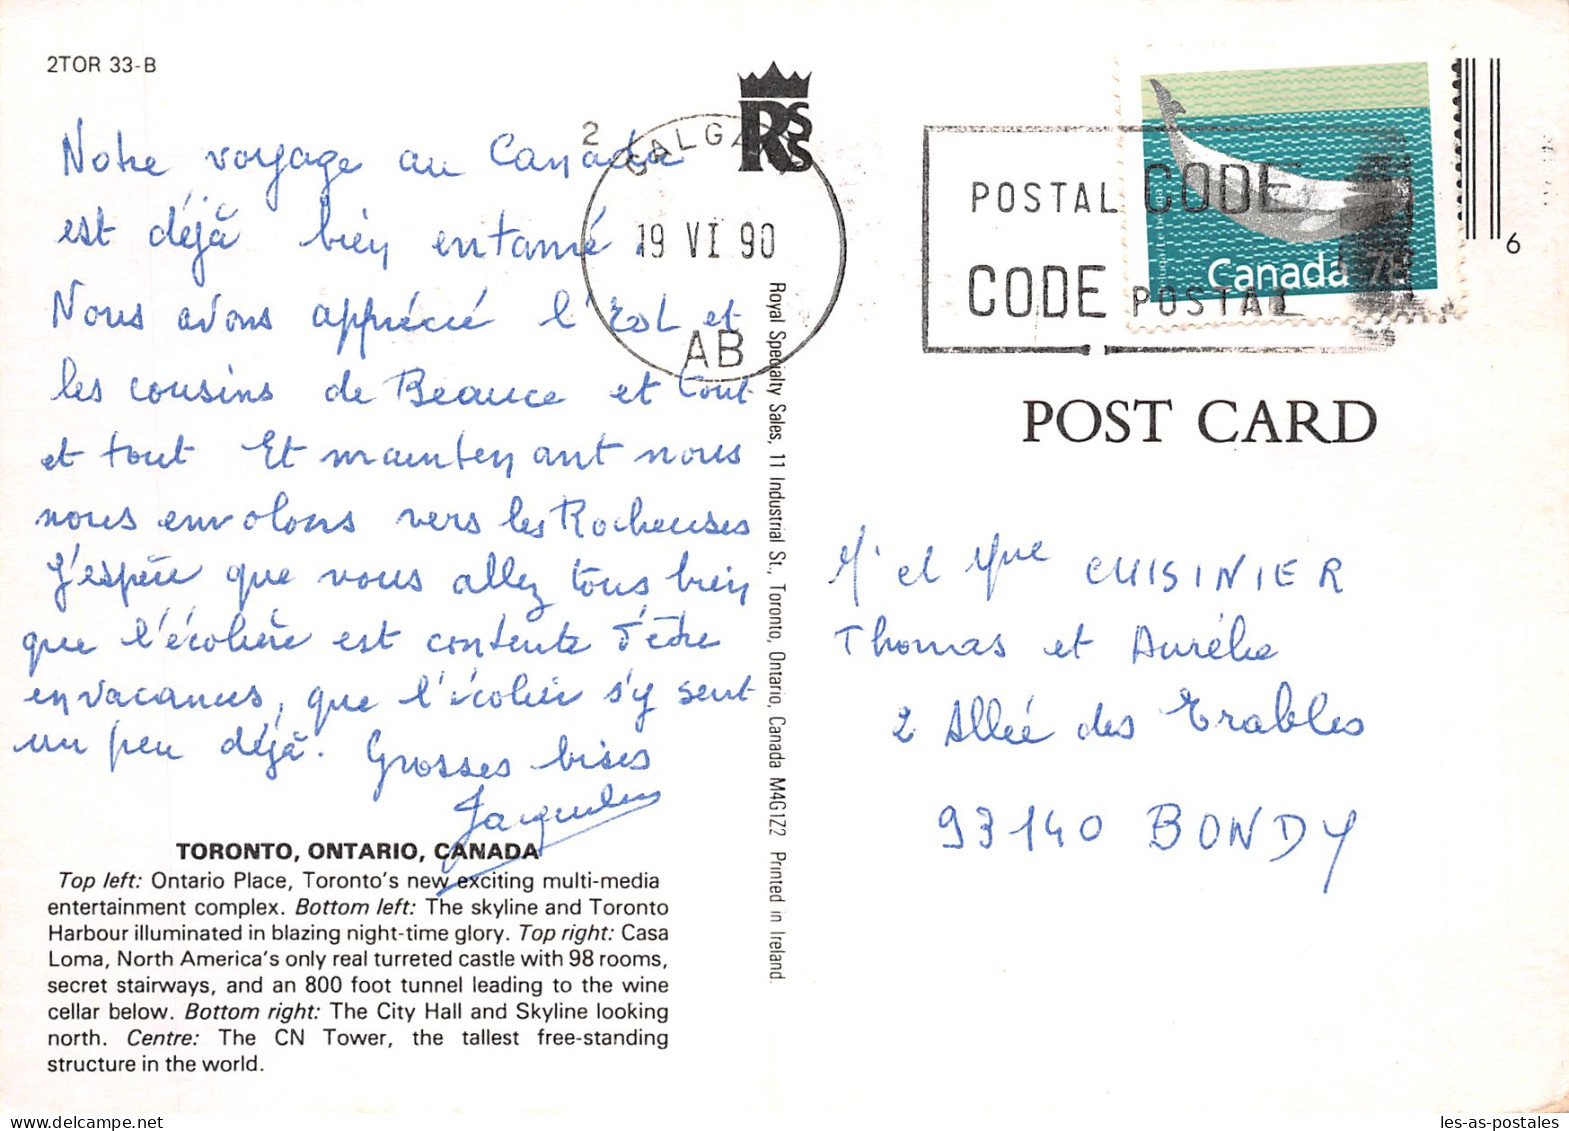 2TOR 33-B
Notre voyage au Canada
est déjà bien entamé.
Nous avons apprécié l'Est et
les cousins de Beauce et tout
et tout Et maintenant nous
nous envolons vers les Rocheuses
J'espère que vous allez tous bien
que l'écolière est contente d'être
en vacances, que l'écolier s'y sent
un peu déjà. Grosses bises
Jacqueline
TORONTO, ONTARIO, CANADA
Top left: Ontario Place, Toronto's new exciting multi-media
entertainment complex. Bottom left: The skyline and Toronto
Harbour illuminated in blazing night-time glory. Top right: Casa
Loma, North America's only real turreted castle with 98 rooms,
secret stairways, and an 800 foot tunnel leading to the wine
cellar below. Bottom right: The City Hall and Skyline looking
north. Centre: The CN Tower, the tallest free-standing
structure in the world.
Royal Specialty Sales, 11 Industrial St., Toronto, Ontario, Canada M4G1Z2 Printed in Ireland.
RSS
2
CALGARY
19 VI 90
AB
POSTAL CODE
CODE POSTAL
Canada 78
6
POST CARD
M. et Mme CUISINIER
Thomas et Aurélie
2 Allée des Erables
93140 BONDY
les-as-postales